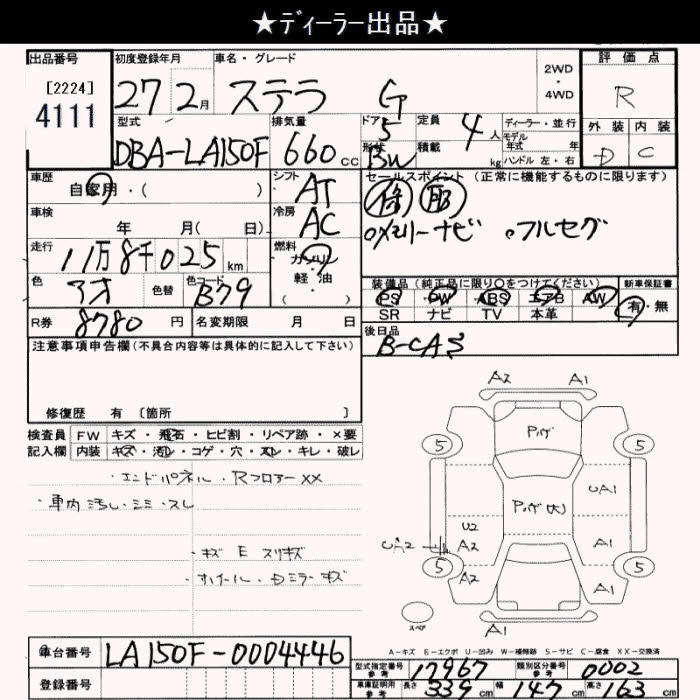 ★ディーラー出品★
出品番号 初度登録年月 車名・グレード 2WD・4WD 評価点
[2224] 4111 27年2月 ステラ G R
型式 排気量 ドア 定員 ディーラー・並行 外装 内装
DBA-LA150F 660cc 5 4人 モデル年式 年 D C
形状 BW 積載 kg ハンドル 左・右
車歴 自家用・( ) シフト AT セールスポイント (正常に機能するものに限ります)
車検 年 月( 日) 冷房 AC
走行 11万8千025km 燃料 ガソリン・軽・油 メモリーナビ フルセグ
色 アオ 色替 色コード B79
装備品 (純正品に限り○をつけてください) 新車保証書
PS PW ABS エアB AW 有・無
SR ナビ TV 本革
R券 8780円 名変期限 月 日 後日品
B-CAS
注意事項申告欄(不具合内容等は具体的に記入して下さい)
修復歴 有 〔箇所 〕
検査員 FW キズ・飛石・ヒビ割・リペア跡・×要
記入欄 内装 キズ・汚レ・コゲ・穴・スレ・キレ・破レ
・エンドパネル・Rフロアー XX
・車内汚し・シミ・スレ
・キズ E スリキズ
・Dミラーキズ
A2 A1
5 Pハゲ 5
Pハゲ(大) UA1
U2
UA2 A2 A1
5 A2 5
A1
スペア
A-キズ E-エクボ U-凹み W-補修跡 S-サビ C-腐食 XX-交換済
車台番号 LA150F-0004446
型式指定番号 参考 17967 類別区分番号 参考 0002
登録番号 車庫証明用 参考 長さ 339cm 幅 147cm 高さ 163cm